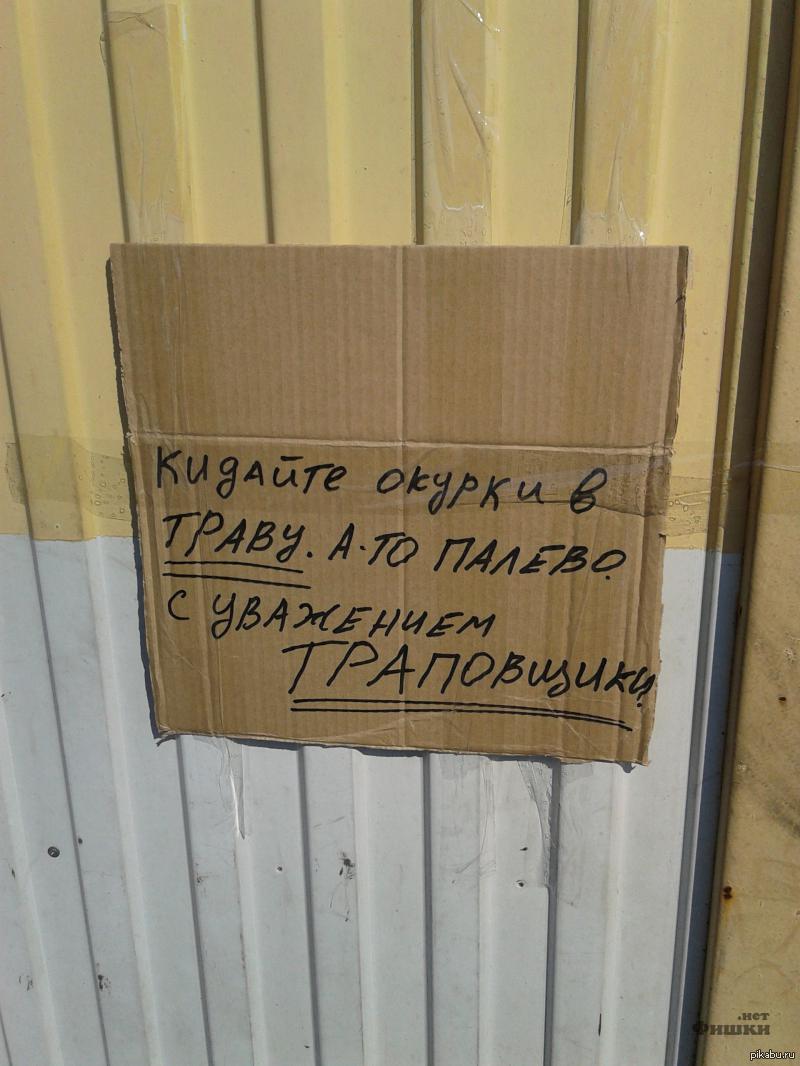 Кидайте окурки в
ТРАВУ. А-ТО ПАЛЕВО.
С УВАЖЕНИЕМ
ТРАПОВЩИКИ.
.нет
Фишки
pikabu.ru